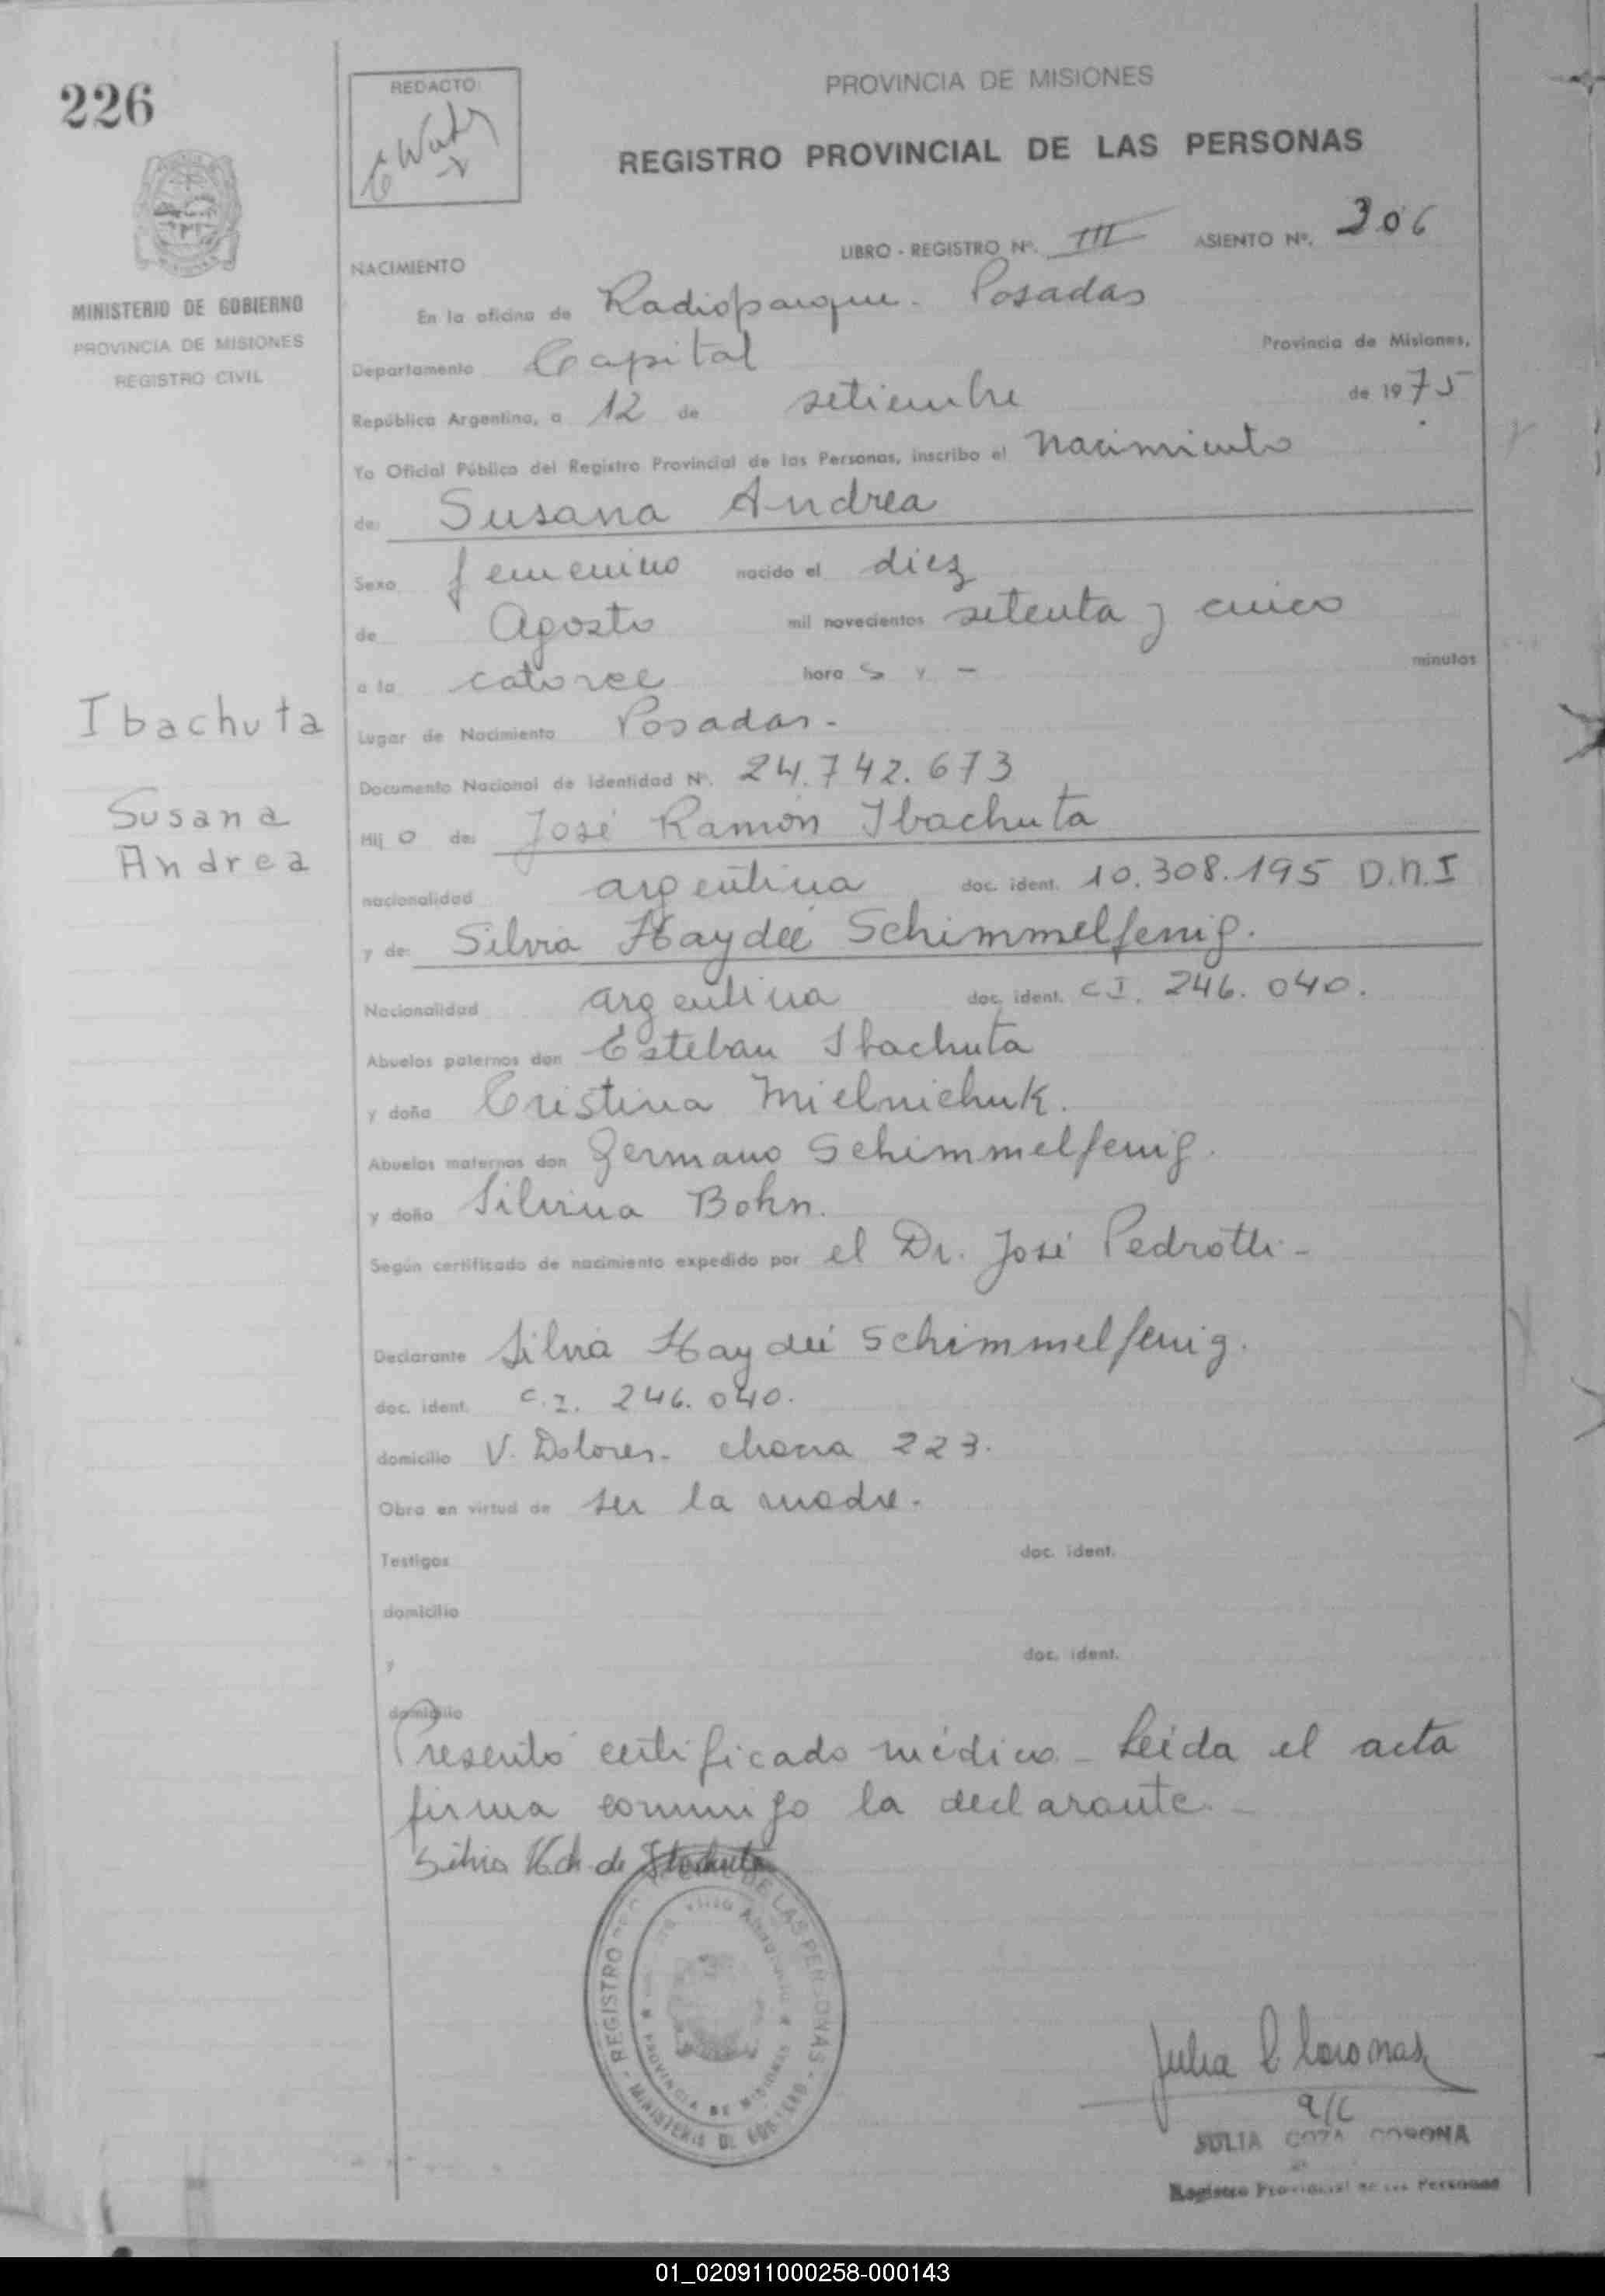 226
REDACTO:
PROVINCIA DE MISIONES
REGISTRO PROVINCIAL DE LAS PERSONAS
MINISTERIO DE GOBIERNO
PROVINCIA DE MISIONES
REGISTRO CIVIL
LIBRO - REGISTRO Nº. III ASIENTO Nº. 306
NACIMIENTO
En la oficina de Radioparque - Posadas
Departamento Capital Provincia de Misiones,
República Argentina, a 12 de setiembre de 1975
Yo Oficial Público del Registro Provincial de las Personas, inscribo el Nacimiento
de: Susana Andrea
Sexo femenino nacido el diez
de Agosto mil novecientos setenta y cinco
a la catorce hora s y - minutos
Ibachuta
Susana
Andrea
Lugar de Nacimiento Posadas -
Documento Nacional de Identidad Nº. 24.742.673
Hij o de: José Ramón Ibachuta
nacionalidad argentina doc. ident. 10.308.195 D.N.I
y de: Silvia Haydeé Schimmelfenig.
Nacionalidad argentina doc. ident. C.I. 246.040.
Abuelos paternos don Esteban Ibachuta
y doña Cristina Mielnichuk.
Abuelos maternos don Germano Schimmelfenig.
y doña Silvina Bohn.
Según certificado de nacimiento expedido por el Dr. José Pedrotti -
Declarante Silvia Haydeé Schimmelfenig.
doc. ident. C.I. 246.040.
domicilio V. Dolores - chacra 223.
Obra en virtud de ser la madre.
Testigos doc. ident.
domicilio
y doc. ident.
domicilio
Presentó certificado médico - Leída el acta
firma conmigo la declarante. -
Silvia de Ibachuta
REGISTRO DE LAS PERSONAS - MINISTERIO DE GOBIERNO
PROVINCIA DE MISIONES
Julia C Coronas
a/c
JULIA CORONA
Registro Provincial de las Personas
01_020911000258-000143